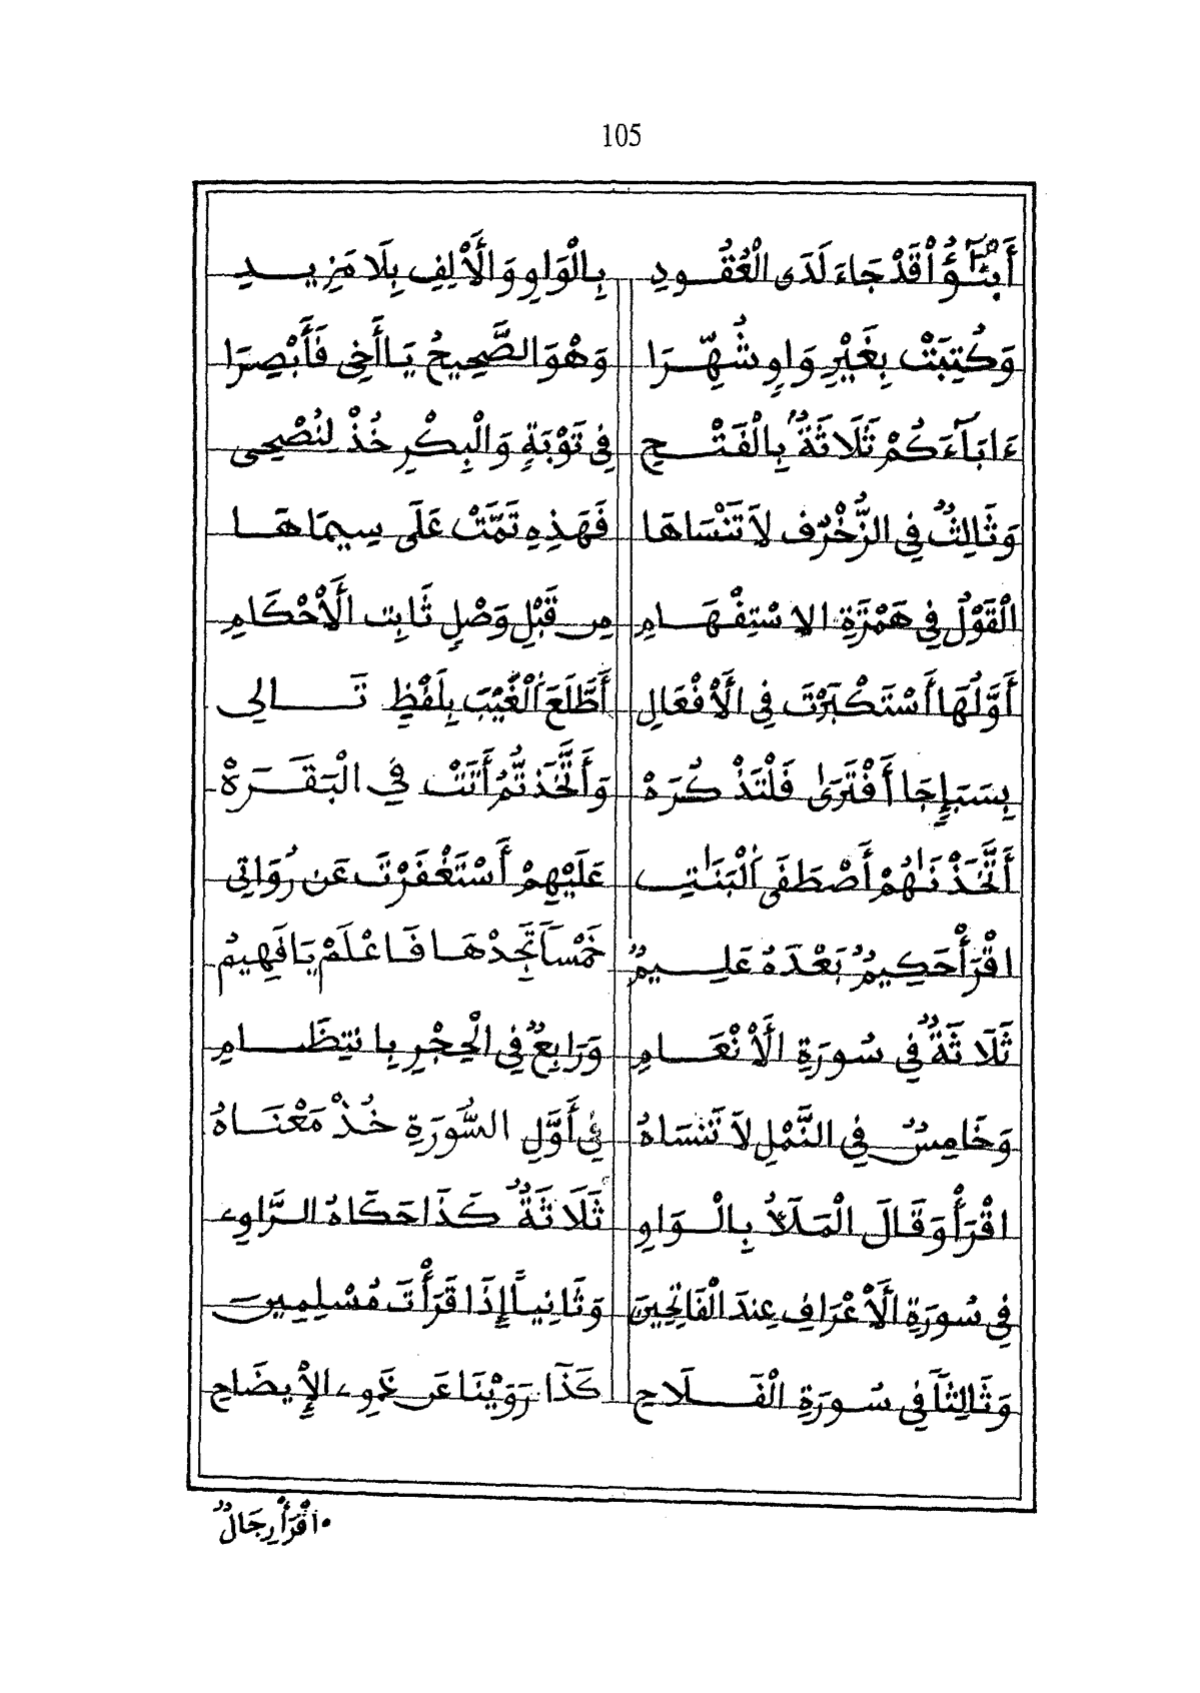 105
أَبْنَٰٓؤُاْ قَدْ جَاءَ لَدَى الْعُقُودِ بِالْوَاوِ وَالْأَلِفِ بِلَا مَزِيدِ
وَكُتِبَتْ بِغَيْرِ وَاوٍ شُهِّرَا وَهْوَ الصَّحِيحُ يَا أَخِي فَأَبْصِرَا
ءَابَآءَكُمْ ثَلَاثَةٌ بِالْفَتْحِ فِي تَوْبَةٍ وَالْبِكْرِ خُذْ لِنُصْحِي
وَثَالِثٌ فِي الزُّخْرُفِ لَا تَنْسَاهَا فَهَذِهِ تَمَّتْ عَلَى سِيمَاهَا
الْقَوْلُ فِي هَمْزَةِ الِاسْتِفْهَامِ مِن قَبْلِ وَصْلٍ ثَابِتِ الْأَحْكَامِ
أَوَّلُهَا أَسْتَكْبَرْتَ فِي الْأَفْعَالِ أَطَّلَعَ اَلْغَيْبَ بِلَفْظٍ تَالِي
بِسَبَإٍ جَا أَفْتَرَىٰ فَلْتَذْكُرَهْ وَأَتَّخَذتُّمُ أَتَتْ فِي الْبَقَرَةْ
أَتَّخَذْنَٰهُمْ أَصْطَفَى اَلْبَنَاتِ عَلَيْهِمْ أَسْتَغْفَرْتَ عَن رُوَاتِي
اقْرَأْ حَكِيمٌ بَعْدَهُ عَلِيمٌ خَمْساً تَجِدْهَا فَاعْلَمْ يَا فَهِيمُ
ثَلَاثَةٌ فِي سُورَةِ الْأَنْعَامِ وَرَابِعٌ فِي الْحِجْرِ بِانْتِظَامِ
وَخَامِسٌ فِي النَّمْلِ لَا تَنْسَاهُ فِي أَوَّلِ السُّورَةِ خُذْ مَعْنَاهُ
اقْرَأْ وَقَالَ الْمَلَأُ بِالْوَاوِ ثَلَاثَةٌ كَذَا حَكَاهُ الرَّاوِي
فِي سُورَةِ الْأَعْرَافِ عِندَ الْفَاتِحِينَ وَثَانِياً إِذَا قَرَأْتَ مُسْلِمِينَ
وَثَالِثاً فِي سُورَةِ الْفَلَاحِ كَذَا رَوَيْنَا عَن ذَوِي الْإِيضَاحِ
اقْرَأْ رِجَالٌ